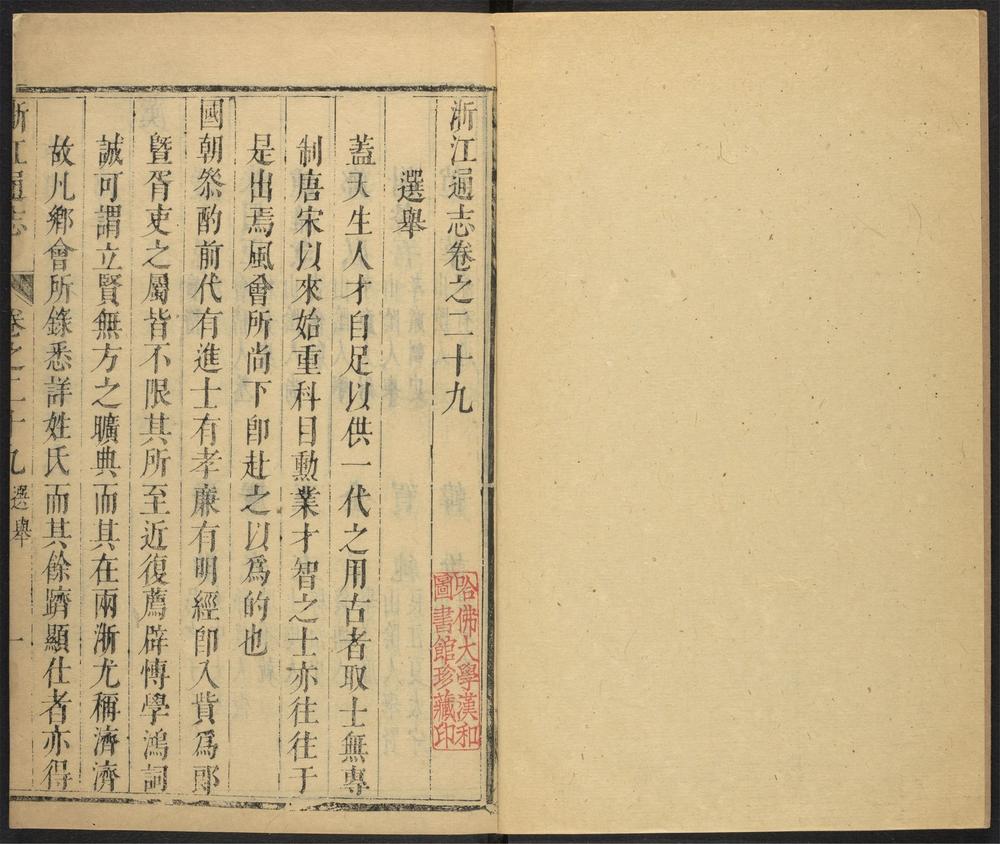 浙江通志卷之二十九
選舉
蓋天生人才自足以供一代之用古者取士無專
制唐宋以來始重科目勳業才智之士亦往往于
是出焉風會所尚下卽赴之以爲的也
國朝叅酌前代有進士有孝廉有明經卽入貲爲郎
暨胥吏之屬皆不限其所至近復薦辟愽學鴻詞
誠可謂立賢無方之曠典而其在兩浙尤稱濟濟
故凡鄉會所錄悉詳姓氏而其餘躋顯仕者亦得
浙江通志
卷之二十九
選舉
一
哈佛大學漢和
圖書館珍藏印